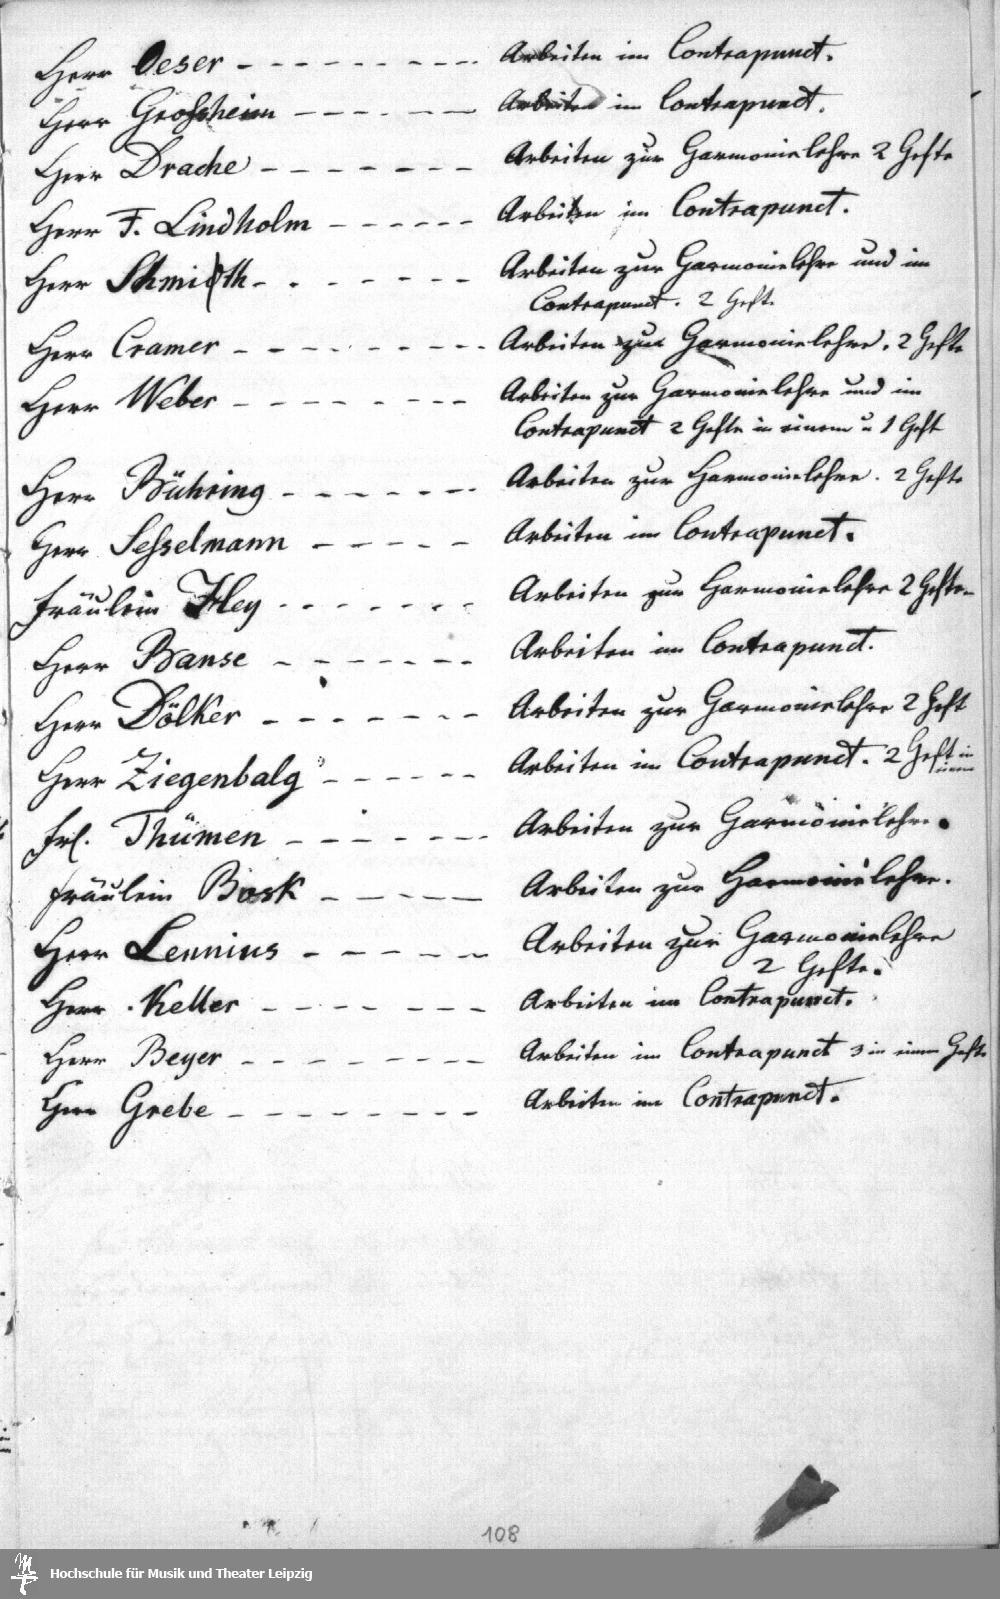 Herr Oeser - - - - - - - - - Arbeiten im Contrapunct.
Herr Grossheim - - - - - - Arbeiten im Contrapunct.
Herr Drache - - - - - - - Arbeiten zur Harmonielehre 2 Hefte
Herr F. Lindholm - - - - - - Arbeiten im Contrapunct.
Herr Schmidth - - - - - - - Arbeiten zur Harmonielehre und im
Contrapunct. 2 Heft.
Herr Cramer - - - - - - - - Arbeiten zur Harmonielehre. 2 Hefte
Herr Weber - - - - - - - - Arbeiten zur Harmonielehre und im
Contrapunct 2 Hefte in einem u 1 Heft
Herr Bühring - - - - - - Arbeiten zur Harmonielehre. 2 Hefte
Herr Sesselmann - - - - - Arbeiten im Contrapunct.
Fräulein Hey - - - - - - - Arbeiten zur Harmonielehre 2 Hefte.
Herr Banse - - - - - - - Arbeiten im Contrapunct.
Herr Dölker - - - - - - - Arbeiten zur Harmonielehre 2 Heft
Herr Ziegenbalg - - - - - - Arbeiten im Contrapunct. 2 Heft in
einem
Frl. Thümen - - - - - - Arbeiten zur Harmonielehre.
Fräulein Bosk - - - - - Arbeiten zur Harmonielehre.
Herr Lennius - - - - - Arbeiten zur Harmonielehre
2 Hefte.
Herr Keller - - - - - - - Arbeiten im Contrapunct.
Herr Beyer - - - - - - - Arbeiten im Contrapunct 3 in einem Hefte
Herr Grebe - - - - - - - - Arbeiten im Contrapunct.
108
Hochschule für Musik und Theater Leipzig